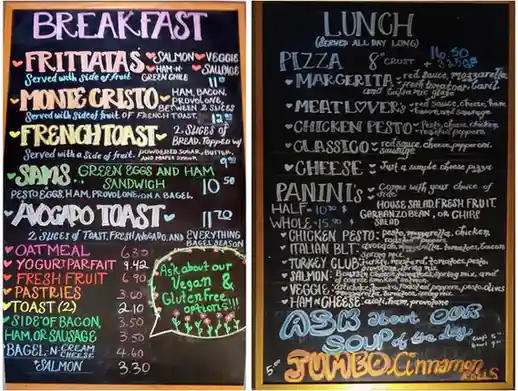 BREAKFAST
FRITTATAS SALMON VEGGIE
HAM-N- SAUSAGE
GREEN CHILE
Served with side of fruit 11
MONTE CRISTO HAM, BACON,
PROVOLONE,
BETWEEN 2 SLICES
Served with side of fruit OF FRENCH TOAST. 12
FRENCH TOAST 2-SLICES OF
BREAD. TOPPED W/
Served with a side of fruit POWDERED SUGAR, BUTTER,
AND MAPLE SYRUP 9
SAMS GREEN EGGS AND HAM
SANDWICH 10 50
PESTO EGGS, HAM, PROVOLONE, ON A BAGEL
AVOCADO TOAST 11 20
2 SLICES OF TOAST, FRESH AVOCADO, AND EVERYTHING
BAGEL SEASON
OATMEAL 6.30
YOGURT PARFAIT 9.42
FRESH FRUIT 6.90
PASTRIES 3.60
TOAST (2) 2.10
SIDE OF BACON, 3.50
HAM, OR SAUSAGE 3.50
BAGEL-N-CREAM CHEESE 4.60
SALMON 3.30
Ask about our
Vegan &
Gluten free
options!!!
LUNCH
(SERVED ALL DAY LONG)
PIZZA 8" CRUST 16.50
MARGERITA - red sauce, mozzarella,
fresh tomatoes, basil
MEAT LOVER'S - red sauce, cheese, ham,
bacon, and sausage
CHICKEN PESTO - Pesto, cheese, chicken,
roasted peppers
CLASSICO - red sauce, cheese, pepperoni,
sausage
CHEESE - Just a simple cheese pizza
PANINIS Comes with your choice of
side:
HALF - 10 HOUSE SALAD, FRESH FRUIT,
GARBANZO BEAN, OR CHIPS
WHOLE - 15 SALAD
CHICKEN PESTO: mozzarella, chicken,
ITALIAN BLT: tomatoes, bacon
TURKEY CLUB:
SALMON: spring mix, and
VEGGIE: pesto, olives
HAM N CHEESE: ham, provolone
ASK about OUR
SOUP of the day
5. JUMBO Cinnamon
ROLLS